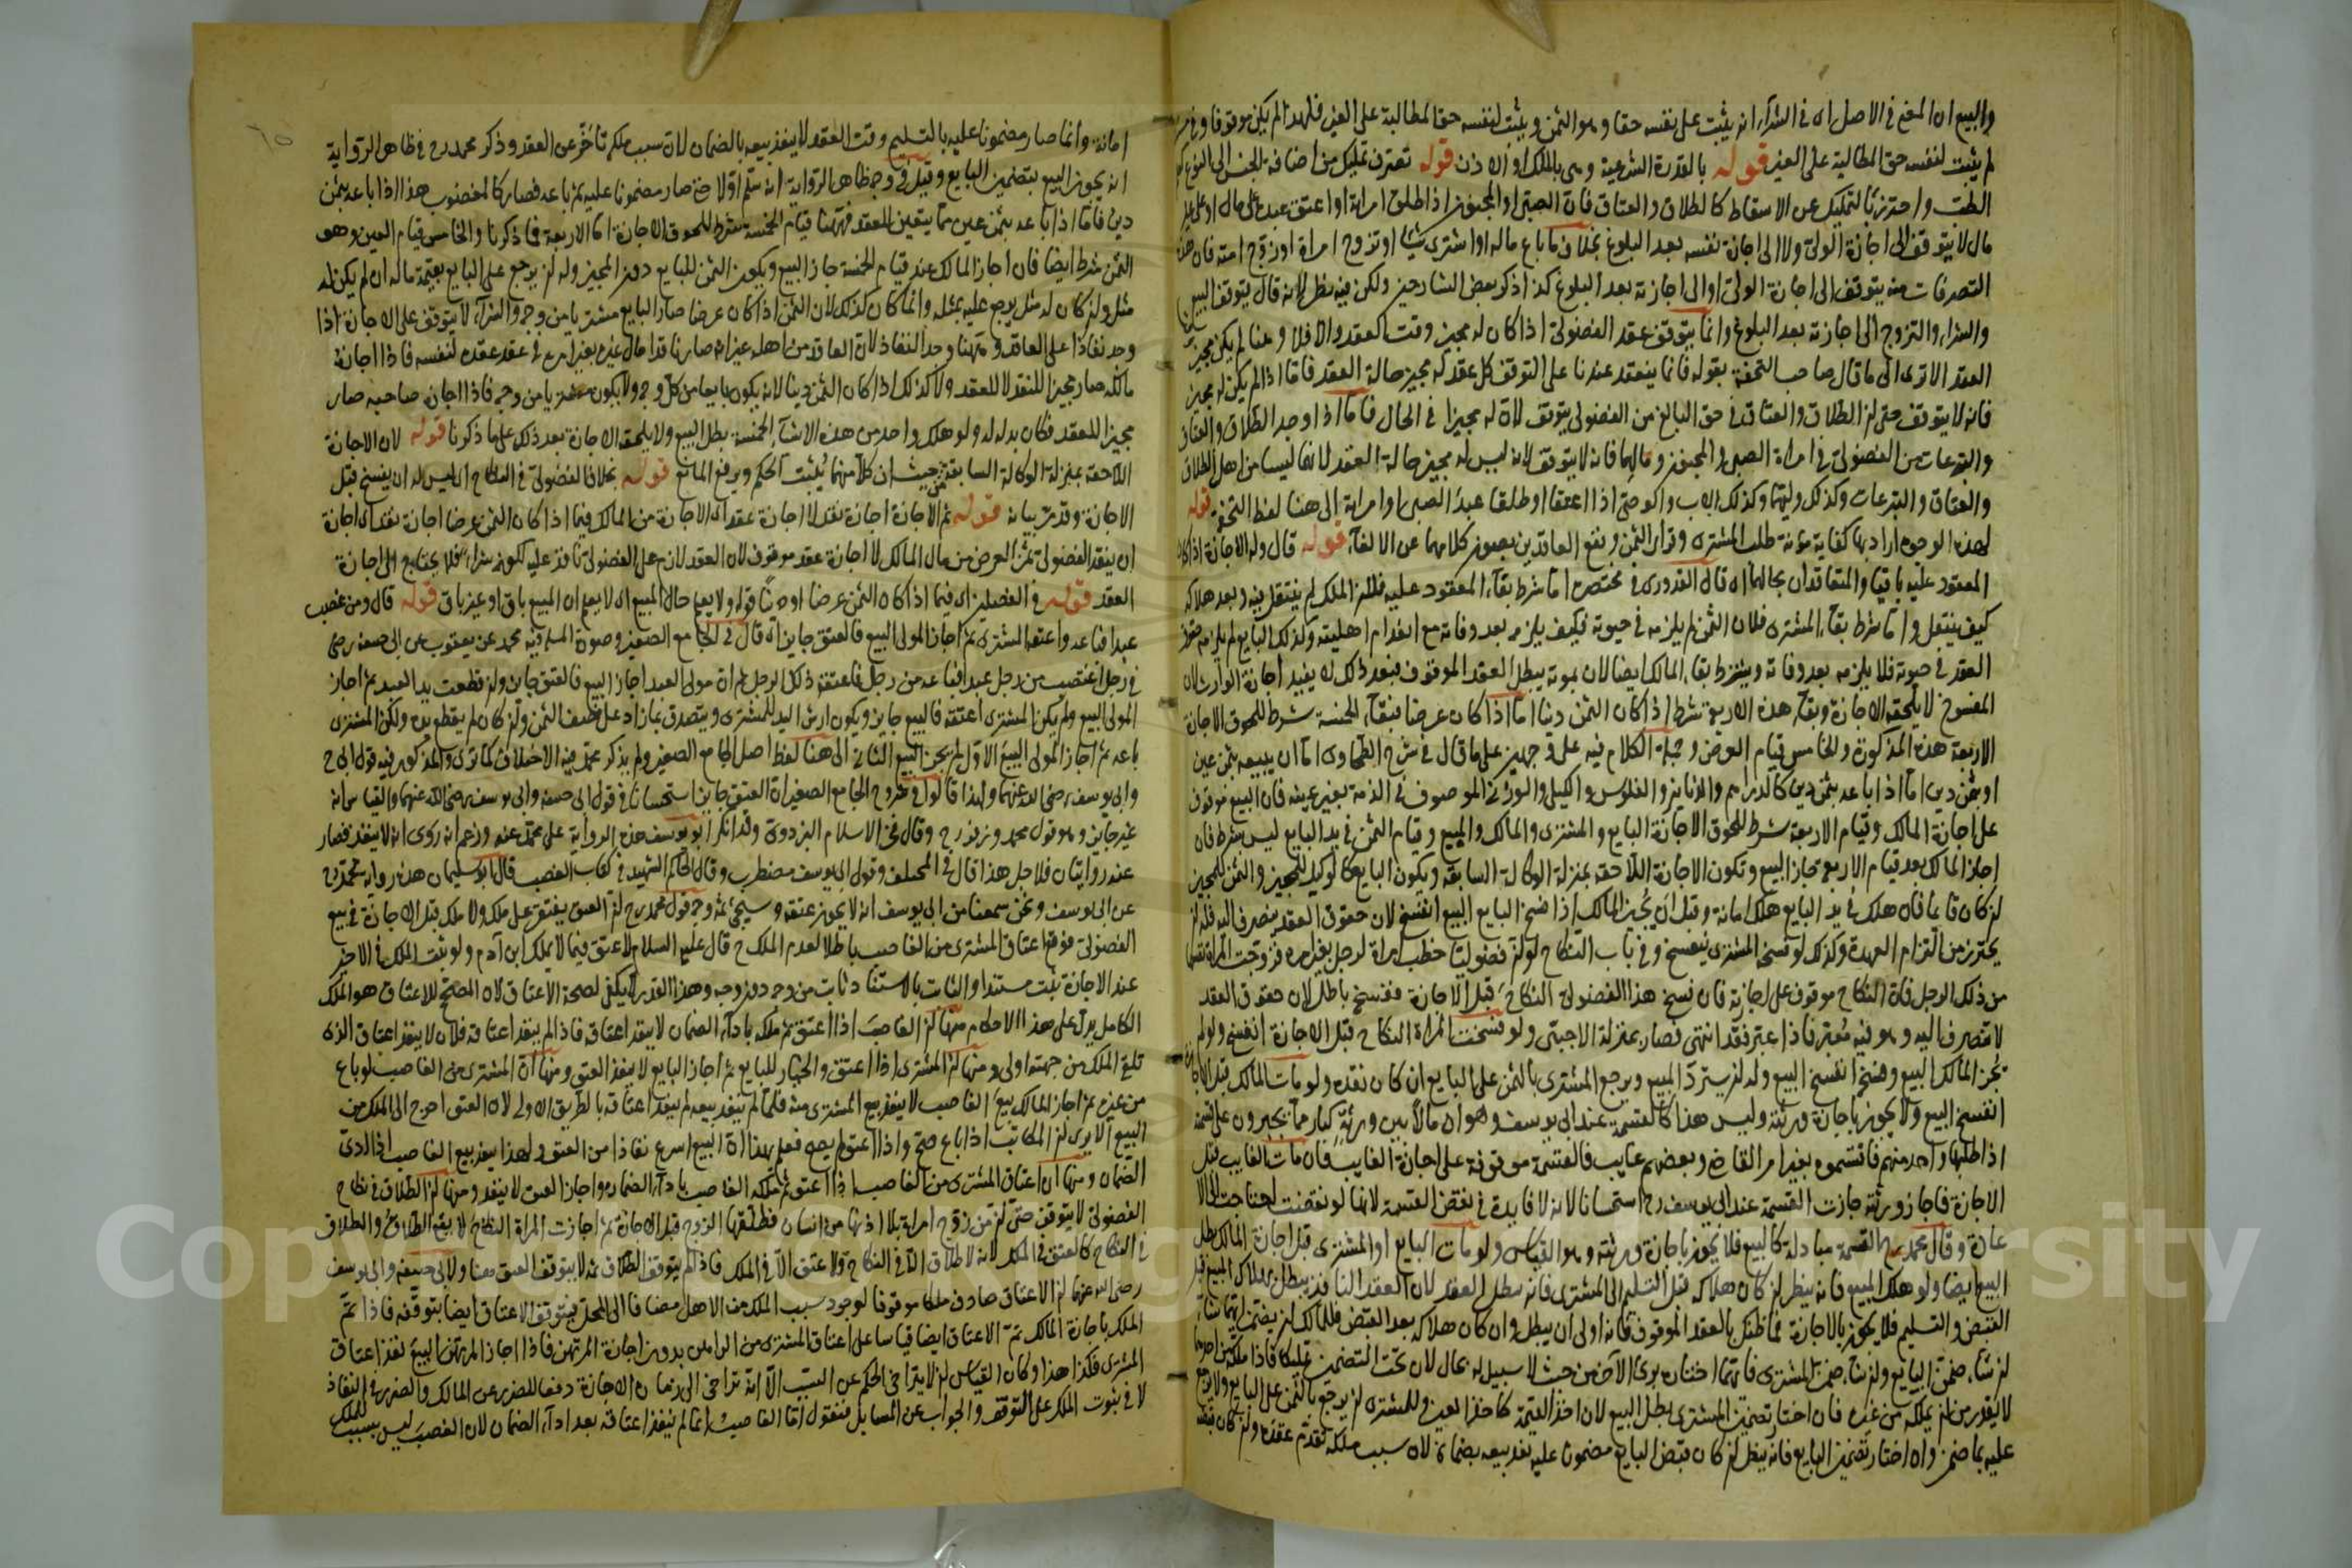 والبيع ان المعنى في الاصل اى في الشراء انه يثبت على نفسه حقا وهو الثمن ويثبت لنفسه حق المطالبة على العين فلهذا لم يكن موقوفا وفي
لم يثبت لنفسه حق المطالبة على العين قوله بالقدرة الشرعية وهى بالملك او الاذن قوله تصرف تمليك من اضافة الجنس الى النوع
واحترز بالتمليك عن الاسقاط كالطلاق والعتاق فان الصبى او المجنون اذا طلق امراته او اعتق عبده على مال او على غير
مال لا يتوقف الى اجازة الولى ولا الى اجازة نفسه بعد البلوغ بخلاف ما باع ماله او اشترى شيئا او تزوج امراة او زوج امته فان هذه
التصرفات منه يتوقف الى اجازة الولى او الى اجازته بعد البلوغ كذا ذكر بعض الشارحين ولكن فيه نظر لانه قال يتوقف البيع
والشراء والتزوج الى اجازته بعد البلوغ وانما يتوقف عقد الفضولى اذا كان له مجيز وقت العقد والا فلا وهنا لم يكن مجيز
العقد الا ترى الى ما قال صاحب التحفة بقوله فانما ينعقد عندنا على التوقف كل عقد له مجيز حالة العقد فاما اذا لم يكن له مجيز
فانه لا يتوقف حتى ان الطلاق والعتاق في حق البالغ من الفضولى يتوقف لان له مجيزا في الحال فاما اذا وجد الطلاق والعتاق
والتبرعات من الفضولى في امراة الصبى والمجنون ومالهما فانه لا يتوقف لانه ليس له مجيز حالة العقد لانهما ليسا من اهل الطلاق
والعتاق والتبرعات وكذلك وليهما وكذلك الاب والوصى اذا اعتقا او طلقا عبد الصبى او امراته الى هنا لفظ التحفة قوله
لهذه الوجوه اراد بها كفاية مؤنة طلب المشترى وقرار الثمن ونفع العاقدين بصون كلامهما عن الالغاء قوله قال وله الاجازة اذا كان
المعقود عليه باقيا والمتعاقدان بحالهما اى قال القدورى في مختصره اما شرط بقاء المعقود عليه فلان الملك لم ينتقل فيه وبعد هلاكه
كيف ينتقل واما شرط بقاء المشترى فلان الثمن لم يلزمه في حيوته فكيف يلزمه بعد وفاته مع انعدام اهليته وكذلك البايع لم يلزمه
العقد في حيوته فلا يلزمه بعد وفاته ويشترط بقاء المالك ايضا لان بموته يبطل العقد الموقوف فبعد ذلك لا يفيد اجازة الوارث لان
المفسوخ لا يلحقه الاجازة وبقاء هذه الاربعة شرط اذا كان الثمن دينا اما اذا كان عرضا فبقاء الخمسة شرط للحوق الاجازة
الاربعة هذه المذكورة والخامس قيام العرض وجملة الكلام فيه على وجهين على ما قال في شرح الطحاوى اما ان يبيعه بثمن عين
او بثمن دين اما اذا باعه بثمن دين كالدراهم والدنانير والفلوس والكيل والوزنى الموصوف في الذمة بغير عينه فان البيع موقوف
على اجازة المالك وقيام الاربعة شرط للحوق الاجازة البايع والمشترى والمالك والمبيع وقيام الثمن في يد البايع ليس بشرط فان
اجاز المالك بعد قيام الاربعة جاز البيع وتكون الاجازة اللاحقة بمنزلة الوكالة السابقة ويكون البايع كالوكيل للمجيز والثمن للمجيز
ان كان قايما فان هلك في يد البايع هلك امانة وقبل ان يجيز المالك اذا فسخ البايع البيع انفسخ لان حقوق العقد ينصرف اليه فله ان
يحترز من التزام العهدة وكذلك لو فسخه المشترى ينفسخ وفي باب النكاح لو ان فضوليا خطب امراة لرجل بغير امره فزوجت المراة نفسها
من ذلك الرجل فان النكاح موقوف على اجازته فان فسخ هذا الفضولى النكاح قبل الاجازة ففسخه باطل لان حقوق العقد
لا تنصرف اليه وهو فيه معبر فاذا عبر فقد انتهى فصار بمنزلة الاجنبى ولو فسخت المراة النكاح قبل الاجازة انفسخ ولو لم
يجز المالك البيع وفسخ انفسخ البيع وله ان يسترد المبيع ويرجع المشترى بالثمن على البايع ان كان نقده ولو مات المالك قبل الاجازة
انفسخ البيع ولا يجوز باجازة ورثته وليس هذا كالقسمة عند ابى يوسف وهو ان مالا بين ورثة كبار مما يجبرون على القسمة
اذا طلبها واحد منهم فاقتسموه بغير امر القاضى وبعضهم غايب فالقسمة موقوفة على اجازة الغايب فان مات الغايب قبل
الاجازة فاجاز ورثته جازت القسمة عند ابى يوسف رح استحسانا لانه لا فايدة في نقض القسمة لانها لو نقضت لاحتاجت الى الا
عادة وقال محمد رح القسمة مبادلة كالبيع فلا يجوز باجازة ورثته وهو القياس ولو مات البايع او المشترى قبل اجازة المالك بطل
البيع ايضا ولو هلك المبيع فانه ينظر ان كان هلاكه قبل التسليم الى المشترى فانه يبطل العقد لان العقد النافذ يبطل بهلاك المبيع قبل
القبض والتسليم فلا يجوز بالاجازة فما ظنك بالعقد الموقوف فانه اولى ان يبطل وان كان هلاكه بعد القبض فللمالك ان يضمن ايهما شاء
ان شاء ضمن البايع وان شاء ضمن المشترى فايهما اختار برئ الاخر من حيث لا سبيل له بحال لان تحت التضمين تمليكا فاذا ملكه من احدهما
لا يقدر من ان يملكه من غيره فان اختار تضمين المشترى بطل البيع لان اخذ القيمة كاخذ العين وللمشترى ان يرجع بالثمن على البايع ولا يرجع
عليه بما ضمن وان اختار تضمين البايع فانه ينظر ان كان قبض البايع مضمونا عليه نفذ بيعه بضمانه لان سبب ملكه تقدم عقده وان كان قبضه
امانة وانما صار مضمونا عليه بالتسليم وقت العقد لا ينفذ بيعه بالضمان لان سبب ملكه تأخر عن العقد وذكر محمد رح في ظاهر الرواية
انه يجوز البيع بتضمين البايع وقيل في وجه ظاهر الرواية انه سلم اولا حتى صار مضمونا عليه ثم باعه فصار كالمغصوب هذا اذا باعه بثمن
دين فاما اذا باعه بثمن عين مما يتعين للعقد فههنا قيام الخمسة شرط للحوق الاجازة اما الاربعة فما ذكرنا والخامس قيام العين وهو
الثمن شرط ايضا فان اجاز المالك عند قيام الخمسة جاز البيع ويكون الثمن للبايع دون المجيز وله ان يرجع على البايع بقيمة ماله ان لم يكن له
مثل وان كان له مثل يرجع عليه بمثله وانما كان كذلك لان الثمن اذا كان عرضا صار البايع مشتريا من وجه والشراء لا يتوقف على الاجازة اذا
وجد نفاذا على العاقد وههنا وجد النفاذ لان العاقد من اهله غير انه صار ناقدا مال غيره بغير امره في عقد عقده لنفسه فاذا اجازة
مالكه صار مجيزا للنقد لا للعقد ولا كذلك اذا كان الثمن دينا لانه يكون بايعا من كل وجه ولا يكون مشتريا من وجه فاذا اجاز صاحبه صار
مجيزا للعقد فكان بدله له ولو هلك واحد من هذه الاشياء الخمسة بطل البيع ولا يلحقه الاجازة بعد ذلك على ما ذكرنا قوله لان الاجازة
اللاحقة بمنزلة الوكالة السابقة من حيث ان كلا منهما يثبت الحكم ويرفع المانع قوله بخلاف الفضولى في النكاح اى ليس له ان يفسخ قبل
الاجازة وقد مر بيانه قوله ثم الاجازة اجازة نقد لا اجازة عقد اى الاجازة من المالك فيما اذا كان الثمن عرضا اجازة نقد اى اجازة
ان ينقد الفضولى ثمن العرض من مال المالك لا اجازة عقد موقوف لان العقد لازم على الفضولى نافذ عليه لكونه شراء فلا يحتاج الى اجازة
العقد قوله في الفصلين اى فيما اذا كان الثمن عرضا او دينا قوله ولا يعلم حال المبيع اى لا يعلم ان المبيع باق او غير باق قوله قال ومن غصب
عبدا فباعه واعتقه المشترى ثم اجاز المولى البيع فالعتق جايز اى قال في الجامع الصغير وصورة المسئلة فيه محمد عن يعقوب عن ابى حنيفة رضى
في رجل اغتصب من رجل عبدا فباعه من رجل فاعتقه ذلك الرجل ثم ان مولى العبد اجاز البيع فالعتق جايز وان قطعت يد العبد ثم اجاز
المولى البيع ولم يكن المشترى اعتقه فالبيع جايز ويكون ارش اليد للمشترى ويتصدق بما زاد على نصف الثمن وان كان لم يقطع يده ولكن المشترى
باعه ثم اجاز المولى البيع الاول لم يجز البيع الثانى الى هنا لفظ اصل الجامع الصغير ولم يذكر محمد فيه الاختلاف كما ترى والمذكور فيه قول ابى ح
وابى يوسف رضى الله عنهما ولهذا قالوا في شروح الجامع الصغير ان العتق جايز استحسانا في قول ابى حنيفة وابى يوسف رضى الله عنهما والقياس انه
غير جايز وهو قول محمد وزفر رح وقال فخر الاسلام البزدوى وقد انكر ابو يوسف هذه الرواية على محمد عنه وزعم انه روى انه لا ينفذ فصار
عنه روايتان فلاجل هذا قال في المختلف وقول ابى يوسف مضطرب وقال الحاكم الشهيد في كتاب الغصب قال ابو سليمان هذه رواية محمد رح
عن ابى يوسف ونحن سمعنا من ابى يوسف انه لا يجوز عتقه وسيجئ ثمه وجه قول محمد رح ان العتق يفتقر على ملكه ولا ملك قبل الاجازة في بيع
الفضولى فوقع اعتاق المشترى من الغاصب باطلا لعدم الملك ح قال عليه السلام لا عتق فيما لا يملك ابن آدم ولو يثبت الملك في الاخر
عند الاجازة ثبت مستندا والثابت بالاستناد ثابت من وجه دون وجه وهذا القدر لا يكفى لصحة الاعتاق لان المصحح للاعتاق هو الملك
الكامل يدل على هذا الاحكام منها ان الغاصب اذا اعتق ثم ملكه باداء الضمان لا ينفذ اعتاقه فاذا لم ينفذ اعتاقه فلان لا ينفذ اعتاق الذى
تلقى الملك من جهته اولى ومنها ان المشترى اذا اعتق والخيار للبايع ثم اجاز البايع لا ينفذ العتق ومنها ان المشترى من الغاصب لو باع
من غيره ثم اجاز المالك بيع الغاصب لا ينفذ بيع المشترى منه فلما لم ينفذ بيعه لم ينفذ اعتاقه بالطريق الاولى لان العتق احوج الى الملك من
البيع الا يرى ان المكاتب اذا باع صح واذا اعتق لم يصح فعلم بهذا ان البيع اسرع نفاذا من العتق ولهذا ينفذ بيع الغاصب اذا ادى
الضمان ومنها ان اعتاق المشترى من الغاصب اذا اعتق ثم ملكه الغاصب باداء الضمان واجاز العتق لا ينفذ ومنها ان الطلاق في نكاح
الفضولى لا يتوقف حتى ان من زوج امراة بلا اذنها من انسان فطلقها الزوج قبل الاجازة ثم اجازت المراة النكاح لا يقع الطلاق والطلاق
في النكاح كالعتق في الملك لانه لا طلاق الا في النكاح ولا عتق الا في الملك فاذا لم يتوقف الطلاق ثمه لا يتوقف العتق هنا ولابى حنيفة وابى يوسف
رضى الله عنهما ان الاعتاق صادف ملكا موقوفا لوجود سبب الملك من الاهل مضافا الى المحل فيتوقف الاعتاق ايضا بتوقفه فاذا تم
الملك باجازة المالك تم الاعتاق ايضا قياسا على اعتاق المشترى من الراهن بدون اجازة المرتهن فاذا اجاز المرتهن البيع نفذ اعتاق
المشترى فكذا هذا وكان القياس ان لا يتراخى الحكم عن السبب الا انه تراخى الى زمان الاجازة دفعا للضرر عن المالك والضرر في النفاذ
لا في ثبوت الملك على التوقف والجواب عن المسايل فنقول اما الغاصب انما لم ينفذ اعتاقه بعد اداء الضمان لان الغصب ليس بسبب للملك